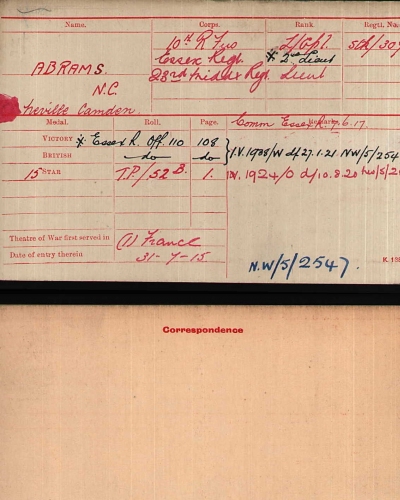 Name. Corps. Rank. Regtl. No.
10th R Fus L/Cpl.
Essex Regt. * 2nd Lieut
ABRAMS. 23rd Regt. Lieut
N.C.
Neville Camden.
Medal. Roll. Page. Comm Essex R. 7.6.17.
VICTORY * Essex R. Off. 110 108
BRITISH do do I.V. 1938/W d/27.1.21 NW/5/254
15 STAR T.P./52 B. 1. I.V. 1924/O d/10.8.20
Theatre of War first served in (1) France
Date of entry therein 31-7-15
N.W/5/2547.
Correspondence